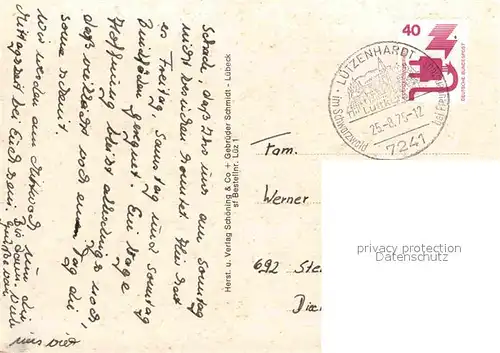 Schade, daß Ihr uns am Sonntag
nicht besuchen konntet. Hier hat
es Freitag, Samstag und Sonntag
Bindfäden geregnet. Ein vage
Hoffnung bleibt allerdings noch,
daß vielleicht noch ein Tag die
Sonne scheint.
Wir werden am Mittwoch um die
Mittagszeit bei Euch sein. Bis dann. Viele
Grüße von
uns vier
Herst. u. Verlag Schöning & Co + Gebrüder Schmidt - Lübeck
sf Bestellnr. Lüz 1
LÜTZENHARDT
Im Schwarzwald
25.-8.75-12
7241
40
DEUTSCHE BUNDESPOST
Fam.
Werner
692
privacy protection
Datenschutz